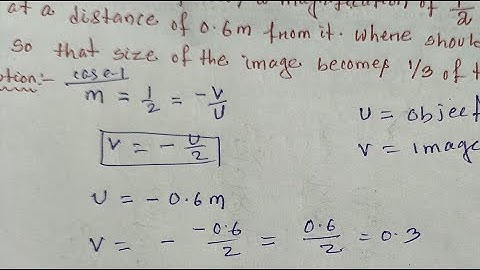 at a distance of 0.6m from it. where shoul
so that size of the image becomes 1/3 of t
otion:- case-1
m = 1/2 = -V/U
V = - U/2
U = object
V = image
U = - 0.6m
V = - -0.6/2 = 0.6/2 = 0.3